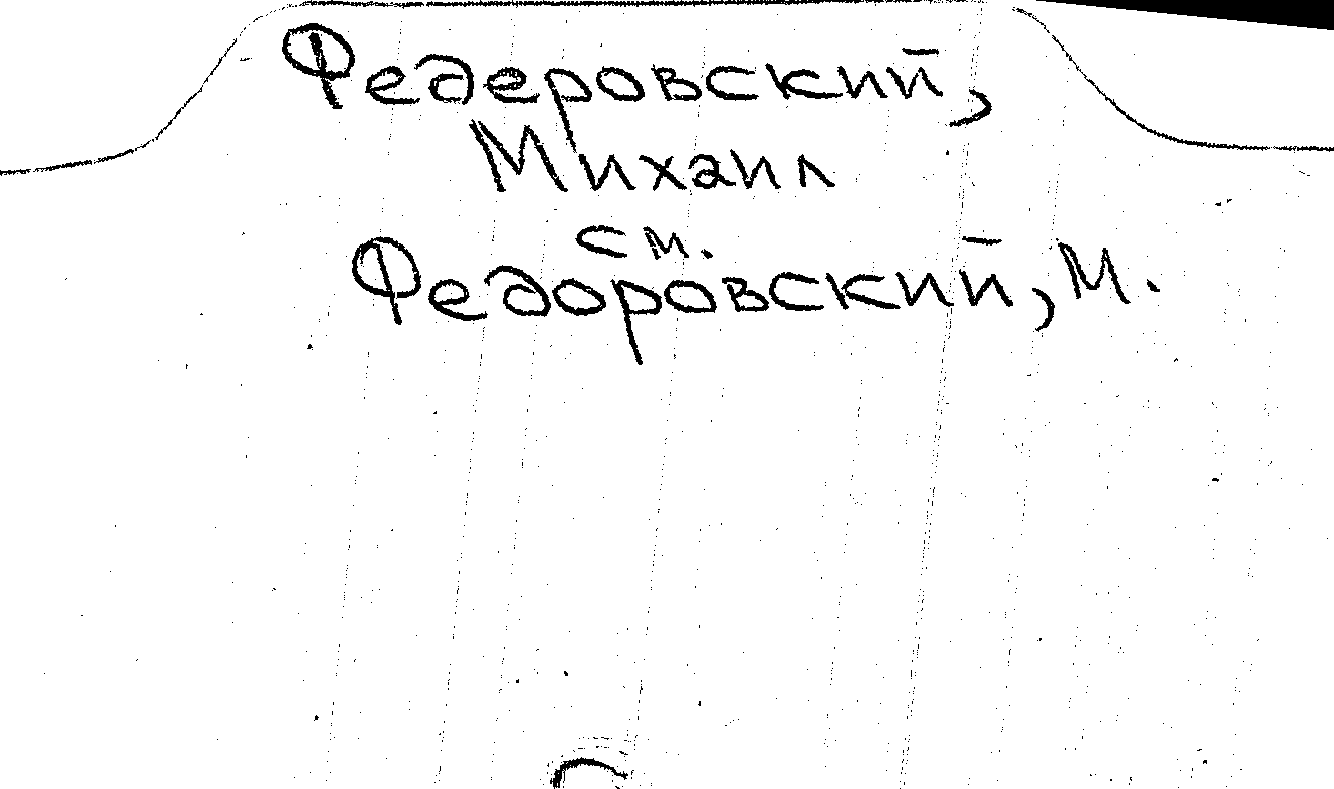 Федеровский,
Михаил
см.
Федоровский, М.